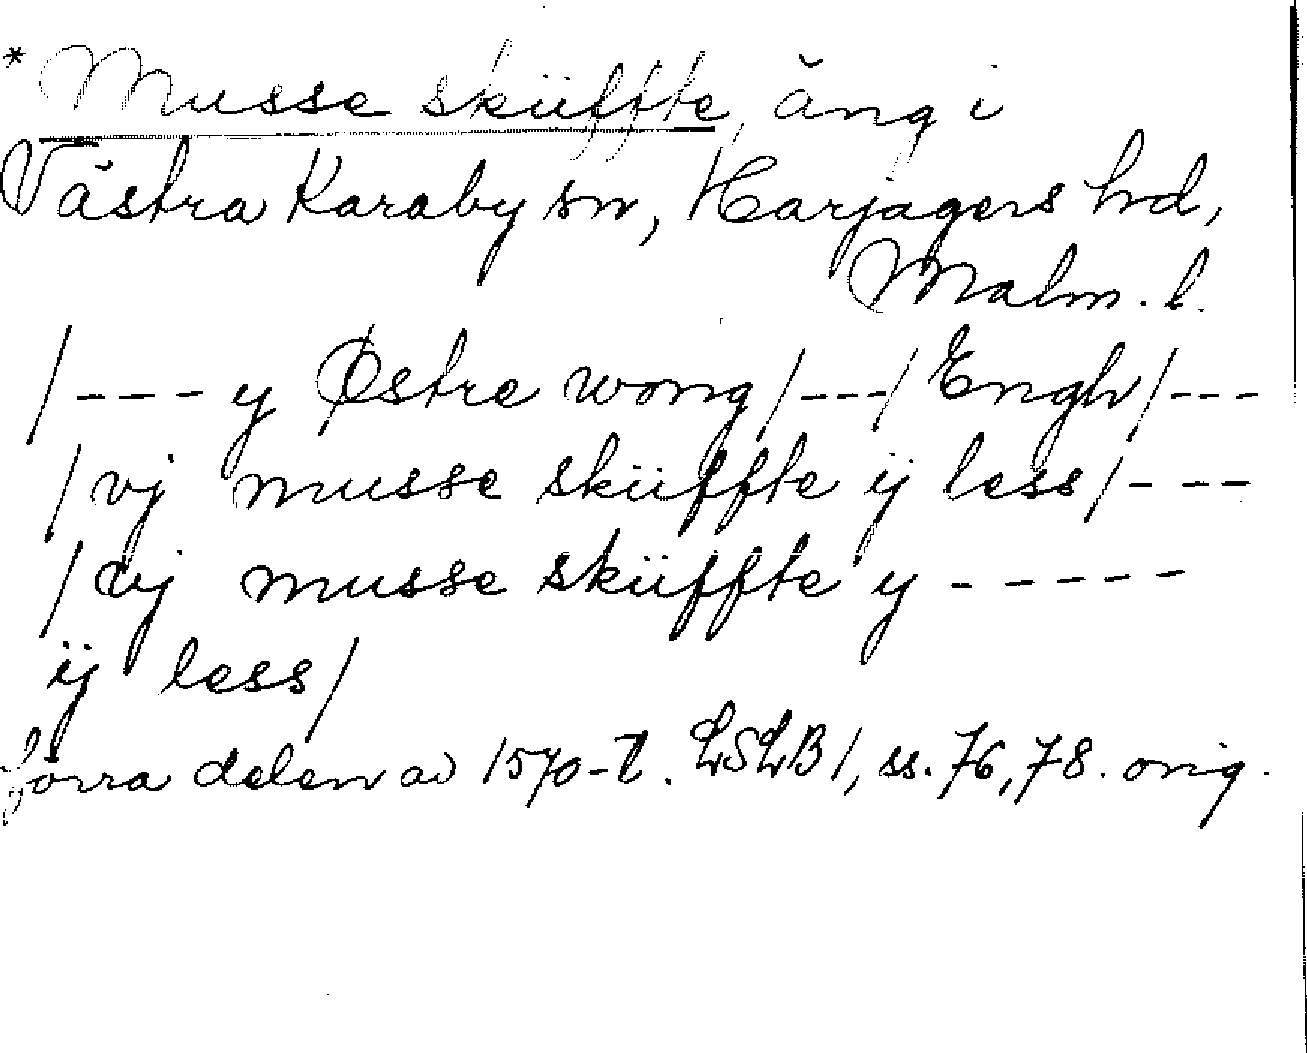 * Musse sküffte, äng i
Västra Karaby sn, Harjagers hd,
Malm. l.
/---- y Østre wong/---/Engh/---
/vj musse sküffte ij less/---
/vj musse sküffte y -----
ij less/
förra delen av 1570-t. LSLB 1, ss. 76, 78. orig.